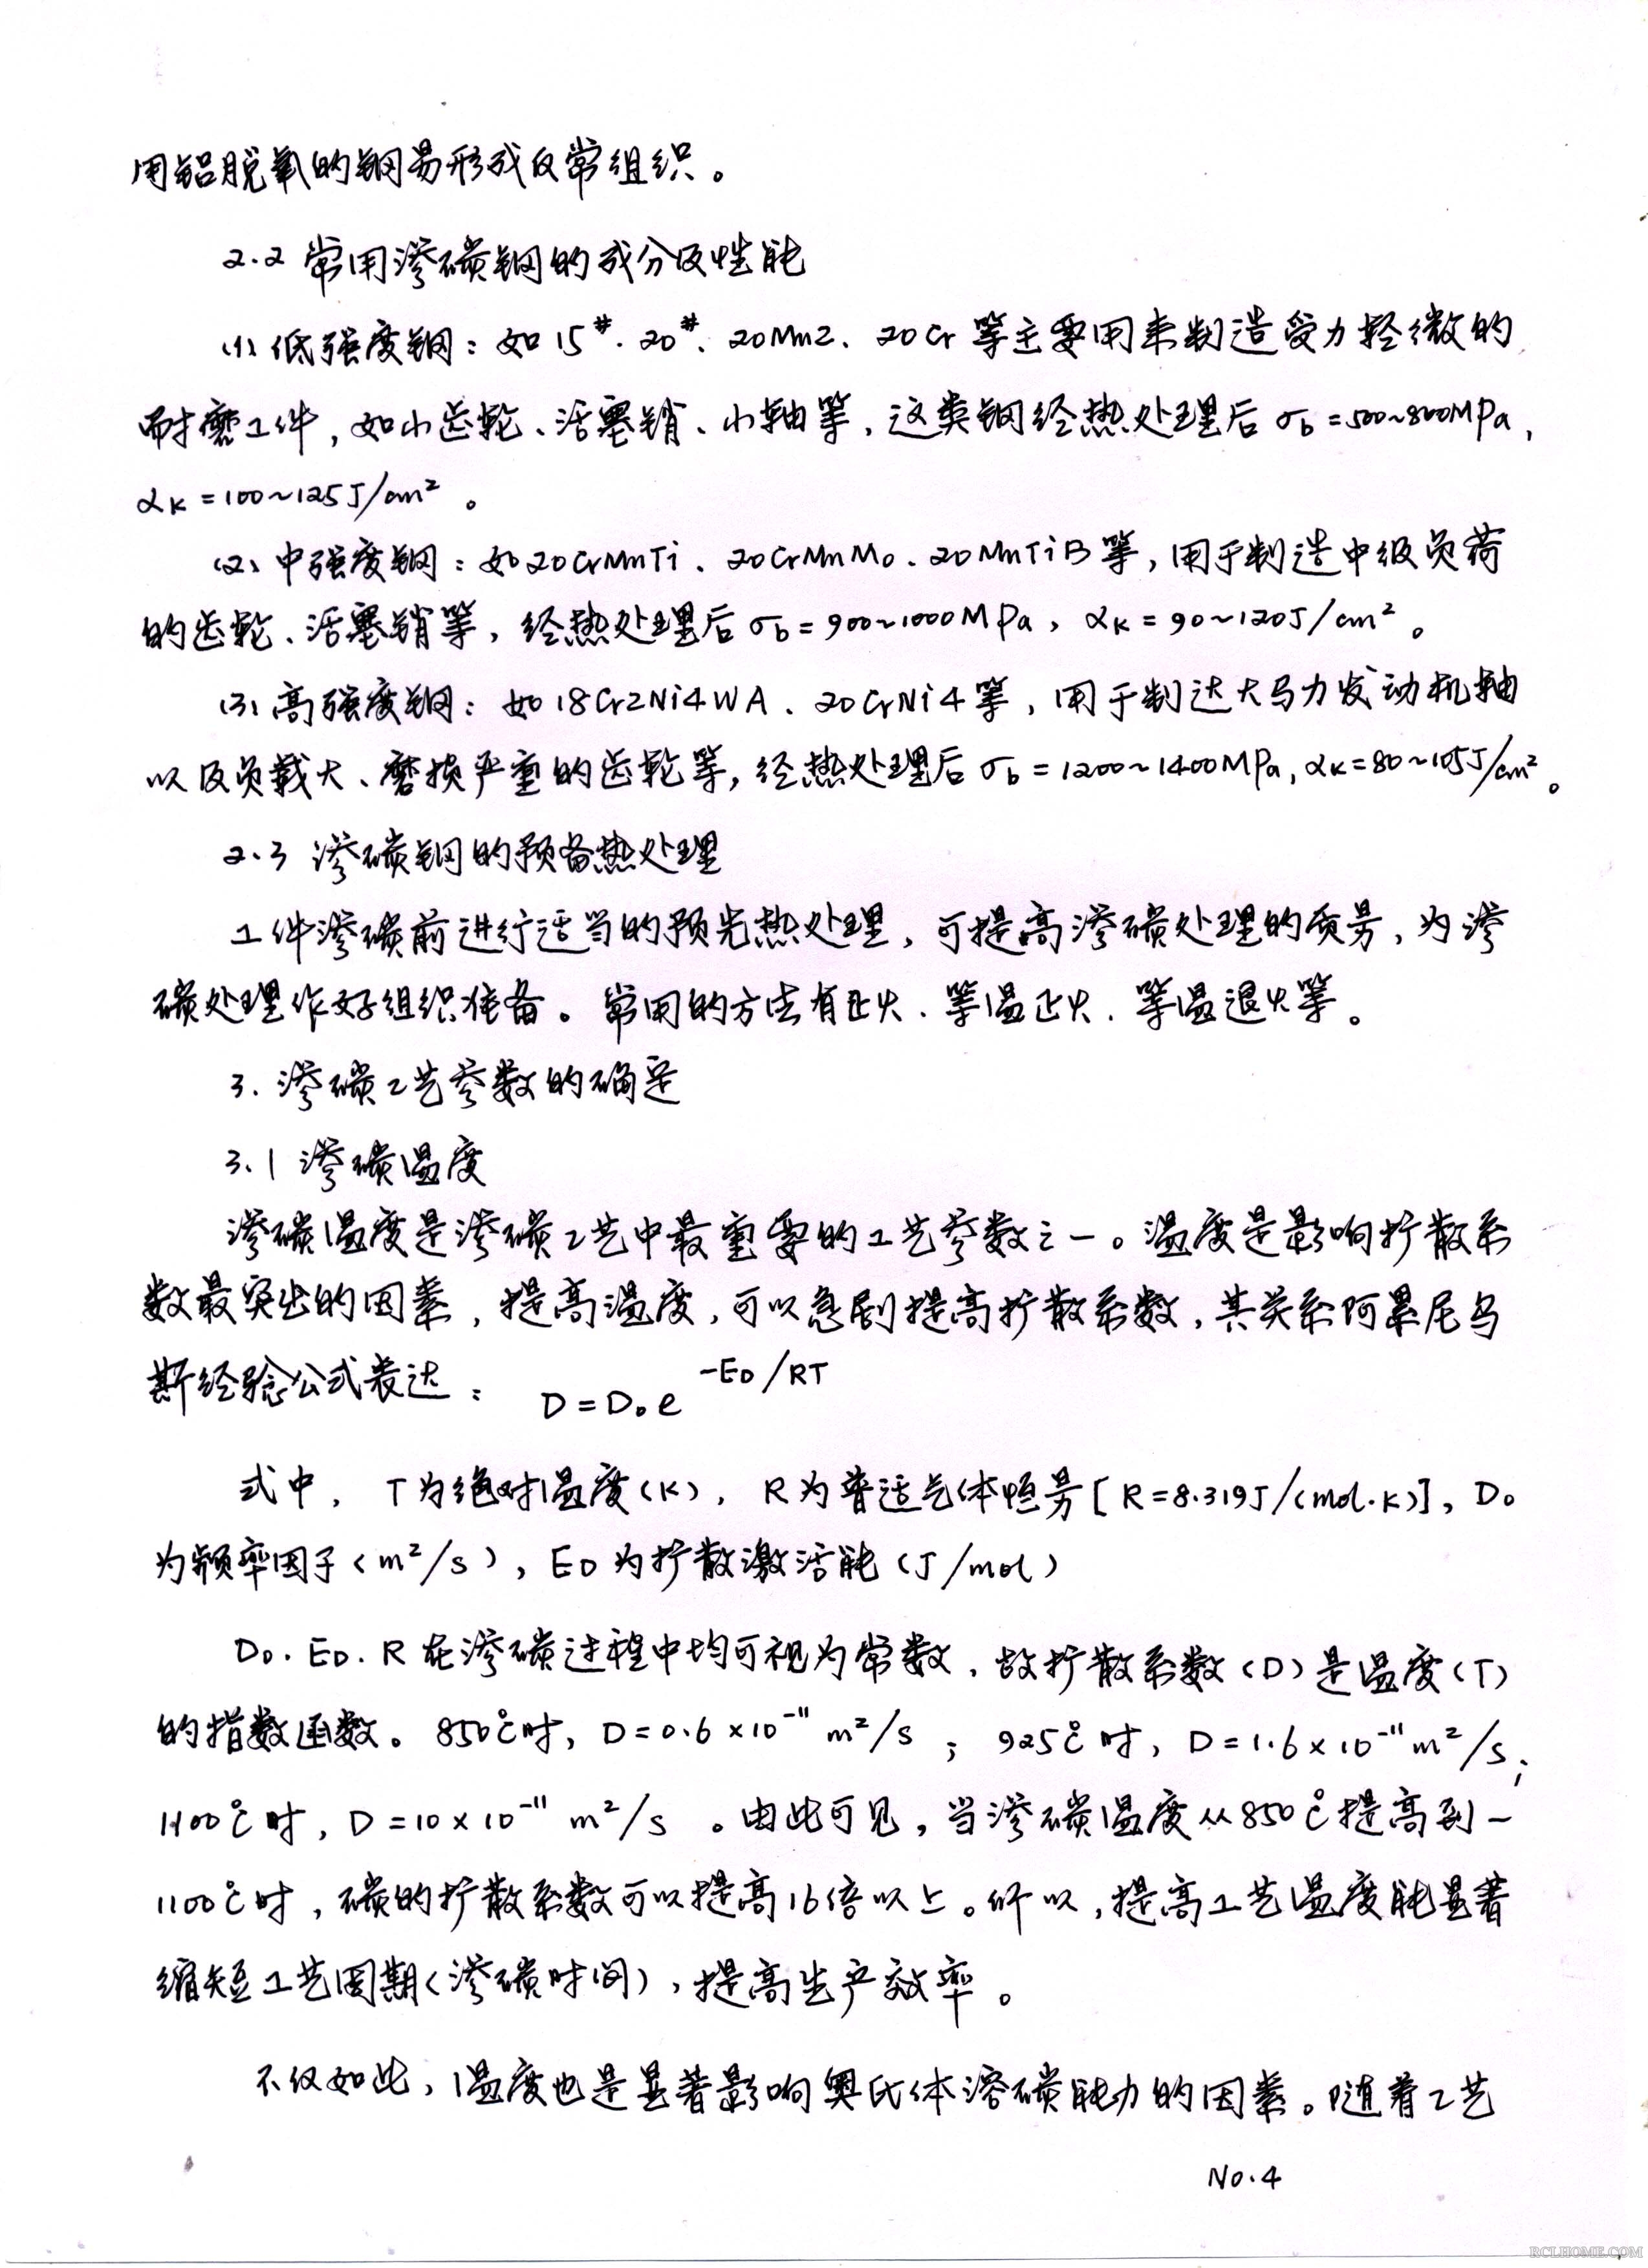 用铝脱氧的钢易形成反常组织。
2.2 常用渗碳钢的成分及性能
(1) 低强度钢：如15#、20#、20Mn2、20Cr 等主要用来制造受力轻微的
耐磨工件，如小齿轮、活塞销、小轴等，这类钢经热处理后 σb=500~800MPa，
αK=100~125J/cm²。
(2) 中强度钢：如20CrMnTi、20CrMnMo、20MnTiB等，用于制造中级负荷
的齿轮、活塞销等，经热处理后 σb=900~1000MPa，αK=90~120J/cm²。
(3) 高强度钢：如18Cr2Ni4WA、20CrNi4等，用于制达大马力发动机轴
以及负载大、磨损严重的齿轮等，经热处理后 σb=1200~1400MPa，αK=80~105J/cm²。
2.3 渗碳钢的预备热处理
工件渗碳前进行适当的预先热处理，可提高渗碳处理的质量，为渗
碳处理作好组织准备。常用的方法有正火、等温正火、等温退火等。
3. 渗碳工艺参数的确定
3.1 渗碳温度
渗碳温度是渗碳工艺中最重要的工艺参数之一。温度是影响扩散系
数最突出的因素，提高温度，可以急剧提高扩散系数，其关系阿累尼乌
斯经验公式表达： D=D₀e^(-ED/RT)
式中，T为绝对温度(K)，R为普适气体恒量[R=8.319J/(mol·K)]，D₀
为频率因子(m²/s)，ED为扩散激活能(J/mol)
D₀、ED、R在渗碳过程中均可视为常数，故扩散系数(D)是温度(T)
的指数函数。850℃时，D=0.6×10⁻¹¹ m²/s；925℃时，D=1.6×10⁻¹¹ m²/s；
1100℃时，D=10×10⁻¹¹ m²/s。由此可见，当渗碳温度从850℃提高到—
1100℃时，碳的扩散系数可以提高16倍以上。所以，提高工艺温度能显著
缩短工艺周期(渗碳时间)，提高生产效率。
不仅如此，温度也是显著影响奥氏体溶碳能力的因素。随着工艺
No.4
RCLHOME.COM